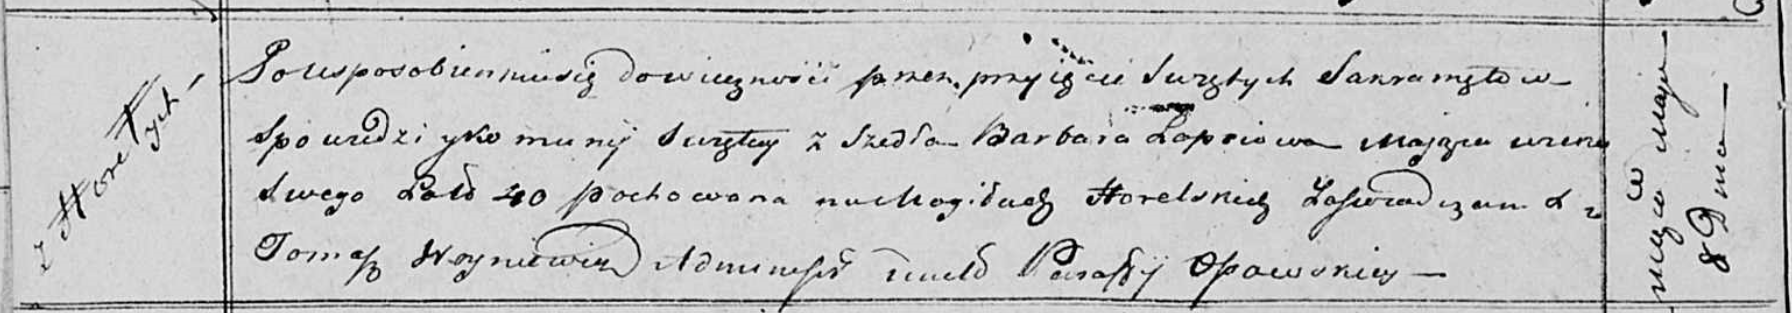 z Horeł
ych,
Po usposobieniusię dowieczności przez przyięcie Swętych Sakramętow
Spowiedzi y komunij Swętey z Szedła Barbara Łapciowa Mająca wieku
Swego Lato 40 pochowana na Mogiłach Horelskich Zaświadczam X z
Tomasz Woyniewicz Administ Paraffij Osowskiey —
miesca Maja
8 Dnia —